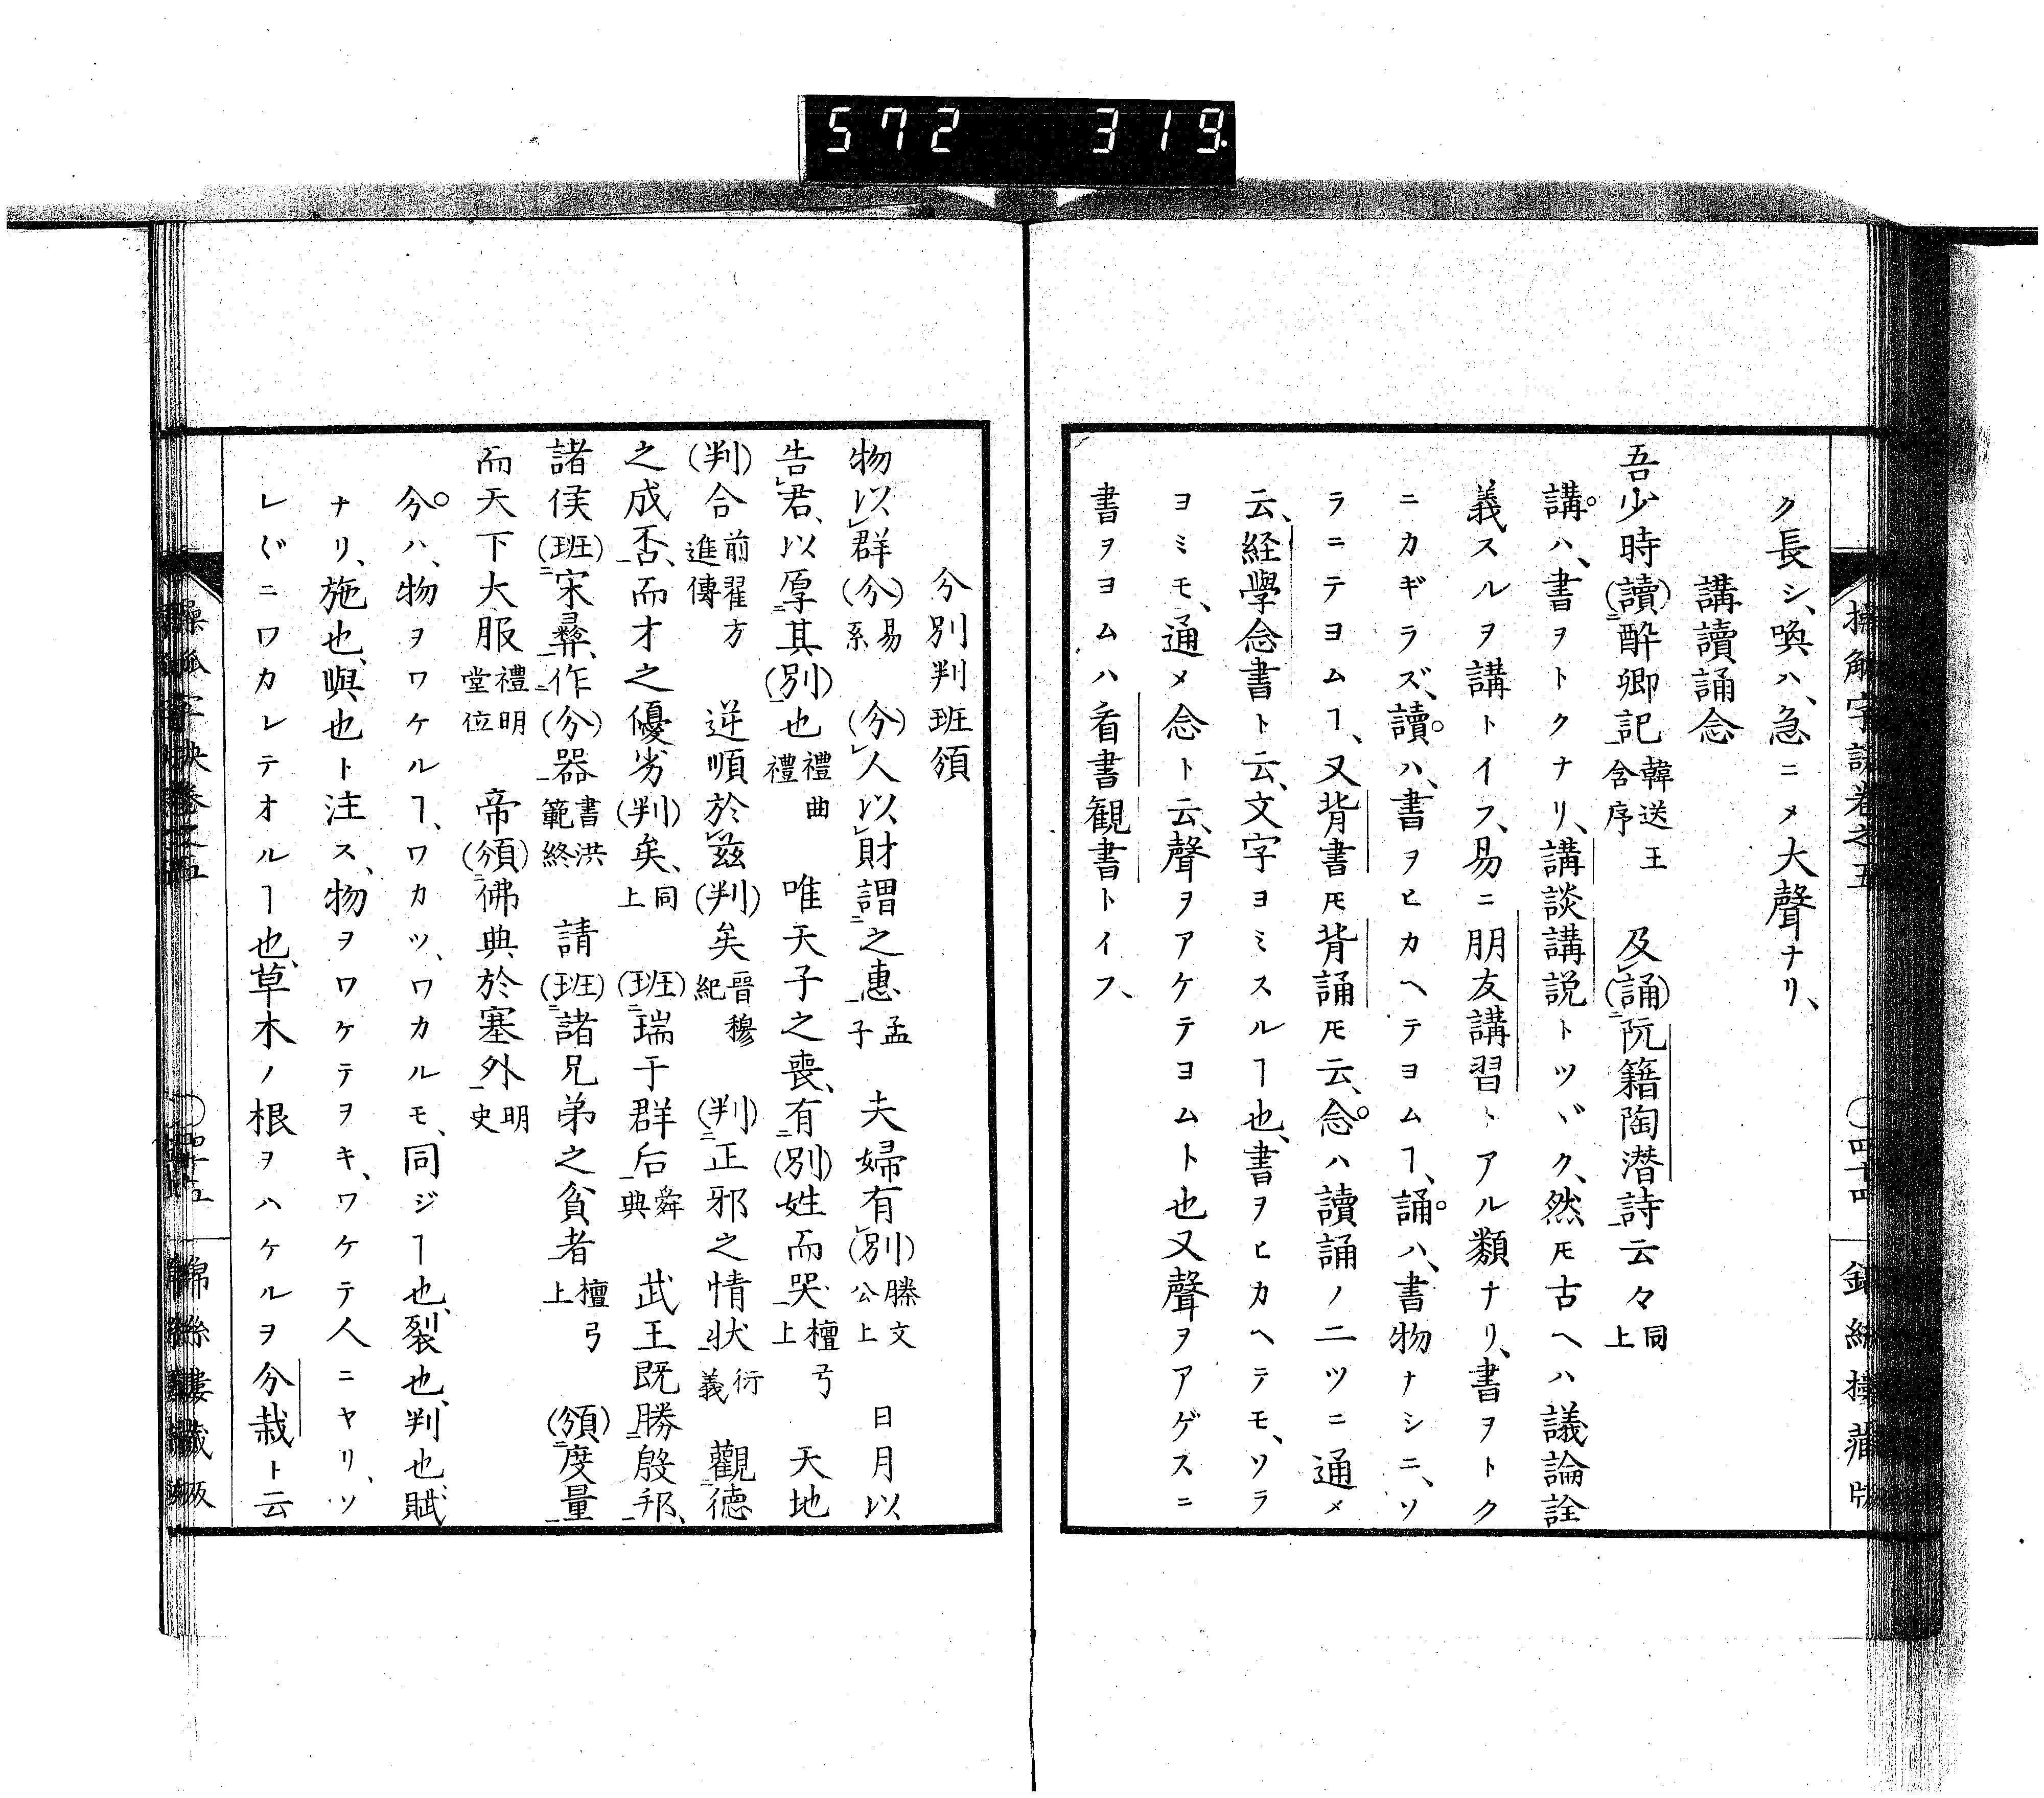 572 319.
ク長シ、喚ハ、急ニメ大聲ナリ、
講讀誦念
吾少時(讀)醉郷記韓送王含序 及(誦)阮籍陶潜詩云々同上
講。ハ、書ヲトクナリ、講談講説トツヾク、然𪜈古ヘハ議論詮
義スルヲ講トイフ、易ニ朋友講習トアル類ナリ、書ヲトク
ニカギラズ、讀。ハ、書ヲヒカヘテヨムヿ、誦。ハ、書物ナシニ、ソ
ラニテヨムヿ、又背書𪜈背誦𪜈云、念。ハ讀誦ノ二ツニ通メ
云、経學念書ト云、文字ヨミスルヿ也、書ヲヒカヘテモ、ソラ
ヨミモ、通メ念ト云、聲ヲアケテヨムト也又聲ヲアゲスニ
書ヲヨムハ看書観書トイフ、
分別判班頒
物以群(分)易系 (分)人以財謂之惠孟子 夫婦有(別)滕文公上 日月以
告君、以厚其(別)也禮曲禮 唯天子之喪、有(別)姓而哭檀弓上 天地
(判)合前翟方進傳 逆順於兹(判)矣晋穆紀 (判)正邪之情状衍義 觀德
之成否、而才之優劣(判)矣、同上 (班)瑞于群后舜典 武王既勝殷邦、
諸侯(班)宋彝、作(分)器書洪範終 請(班)諸兄弟之貧者檀弓上 (頒)度量
而天下大服禮明堂位 帝(頒)佛典於塞外明史
分。ハ、物ヲワケルヿ、ワカツ、ワカルモ、同ジヿ也、裂也、判也、賦
ナリ、施也、與也ト注ス、物ヲワケテヲキ、ワケテ人ニヤリ、ソ
レ〲ニワカレテオルヿ也、草木ノ根ヲハケルヲ分栽ト云
操觚字訣卷之五 〇四十五 錦絲樓藏版